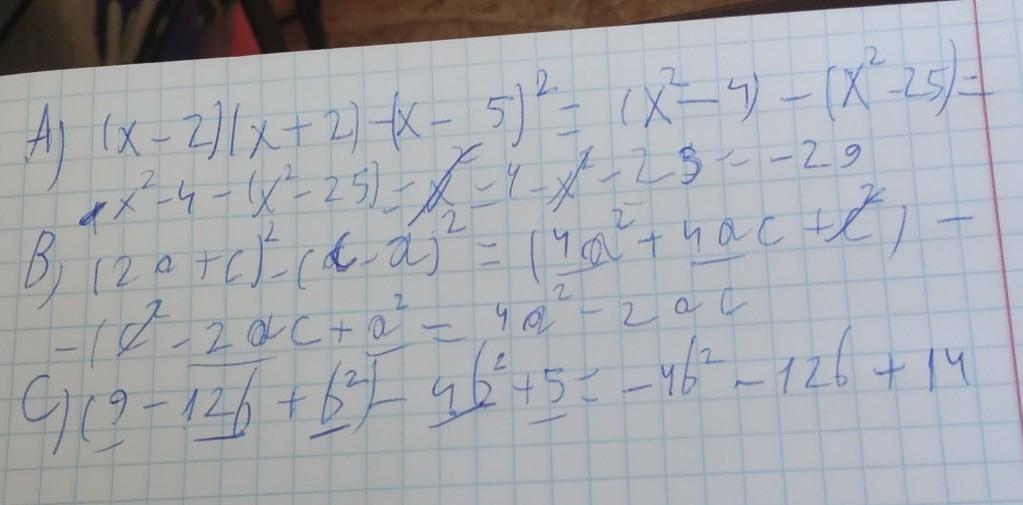 A) (x - 2)(x + 2) - (x - 5)² = (x² - 4) - (x² - 25) =
x² - 4 - (x² - 25) = x² - 4 - x² - 25 = -29
B) (2a + c)² - (c - a)² = (4a² + 4ac + c²) -
- (c² - 2ac + a² = 4a² - 2ac
C) (9 - 12b + b²) - 4b² + 5 = -4b² - 12b + 14